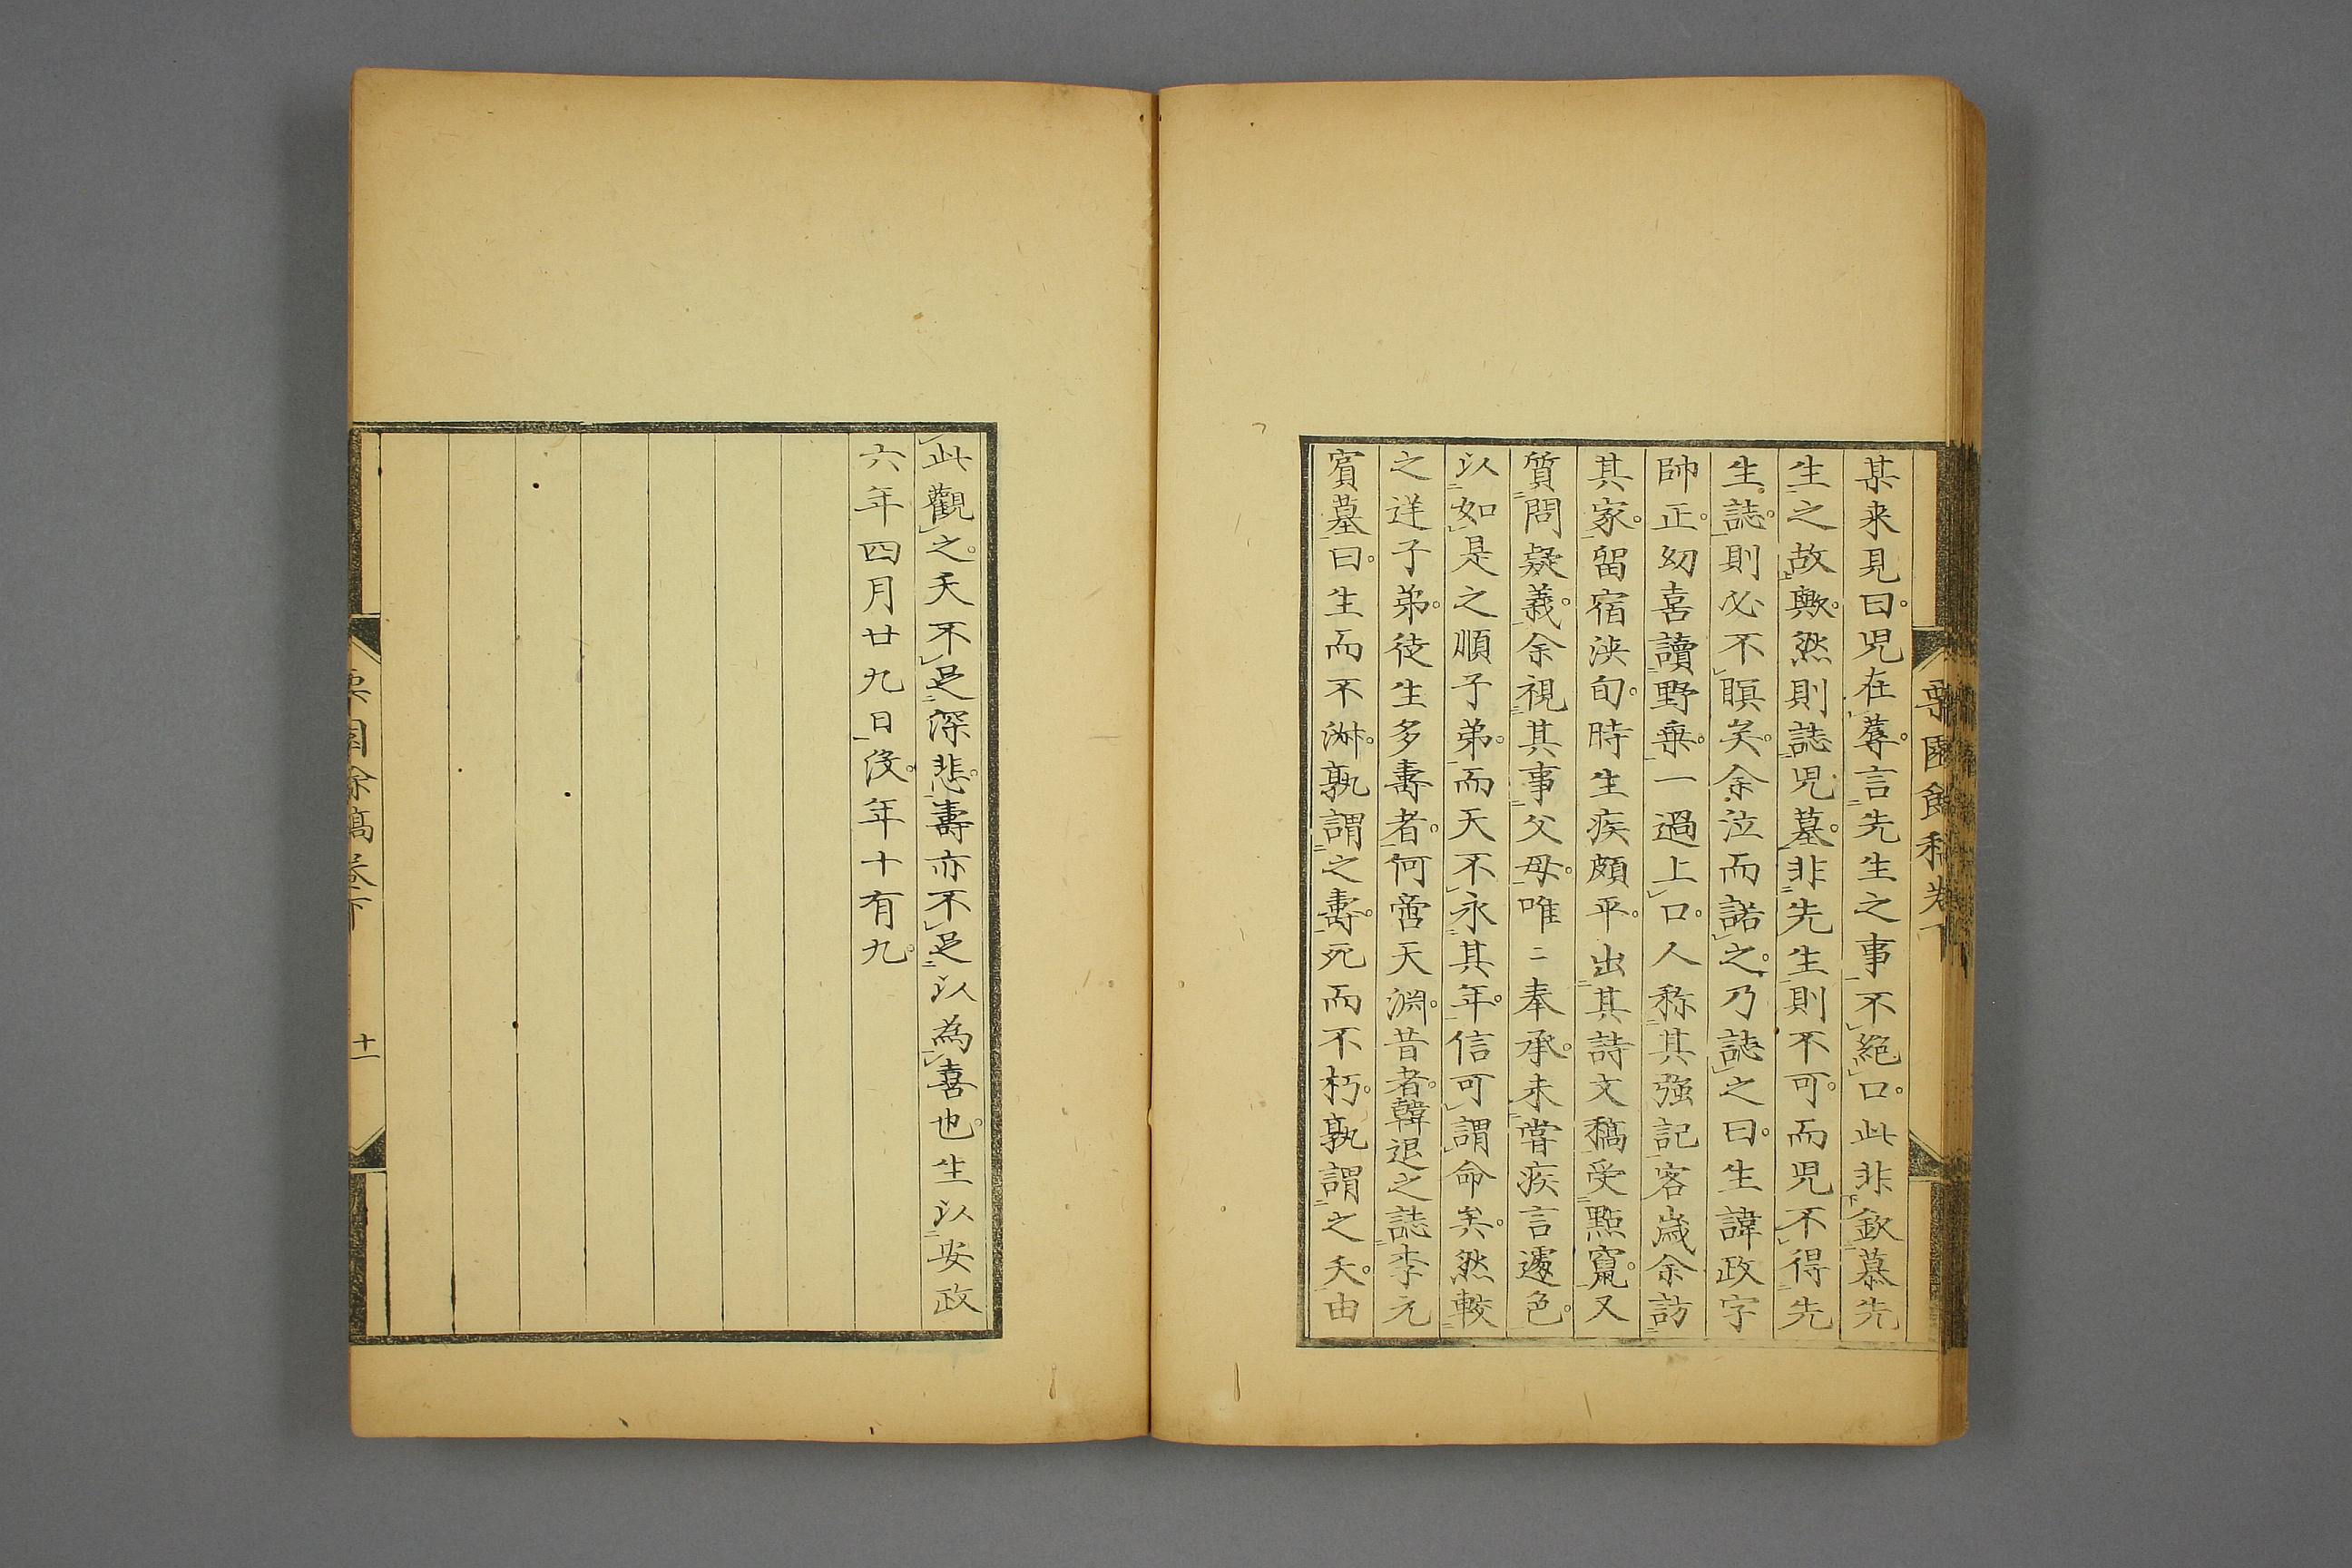 某来見曰。児在蓐。言先生之事不絶口。此非欽慕先
生之故歟。然則誌児墓。非先生則不可。而児不得先
生誌。則必不瞑矣。余泣而諾之。乃誌之曰。生諱政字
帥正。幼喜讀野乗。一過上口。人称其強記。客歳余訪
其家。留宿浹旬。時生疾頗平。出其詩文稿受點竄。又
質問疑義。余視其事父母。唯〻奉承。未嘗疾言遽色。
以如是之順子弟。而天不永其年。信可謂命矣。然較
之逆子弟徒生多壽者。何啻天淵。昔者韓退之誌李元
賓墓曰。生而不淑。孰謂之壽。死而不朽。孰謂之夭。由
此觀之。夭不足深悲。壽亦不足以為喜也。生以安政
六年四月廿九日歿。年十有九。
栗園餘稿巻下
十一